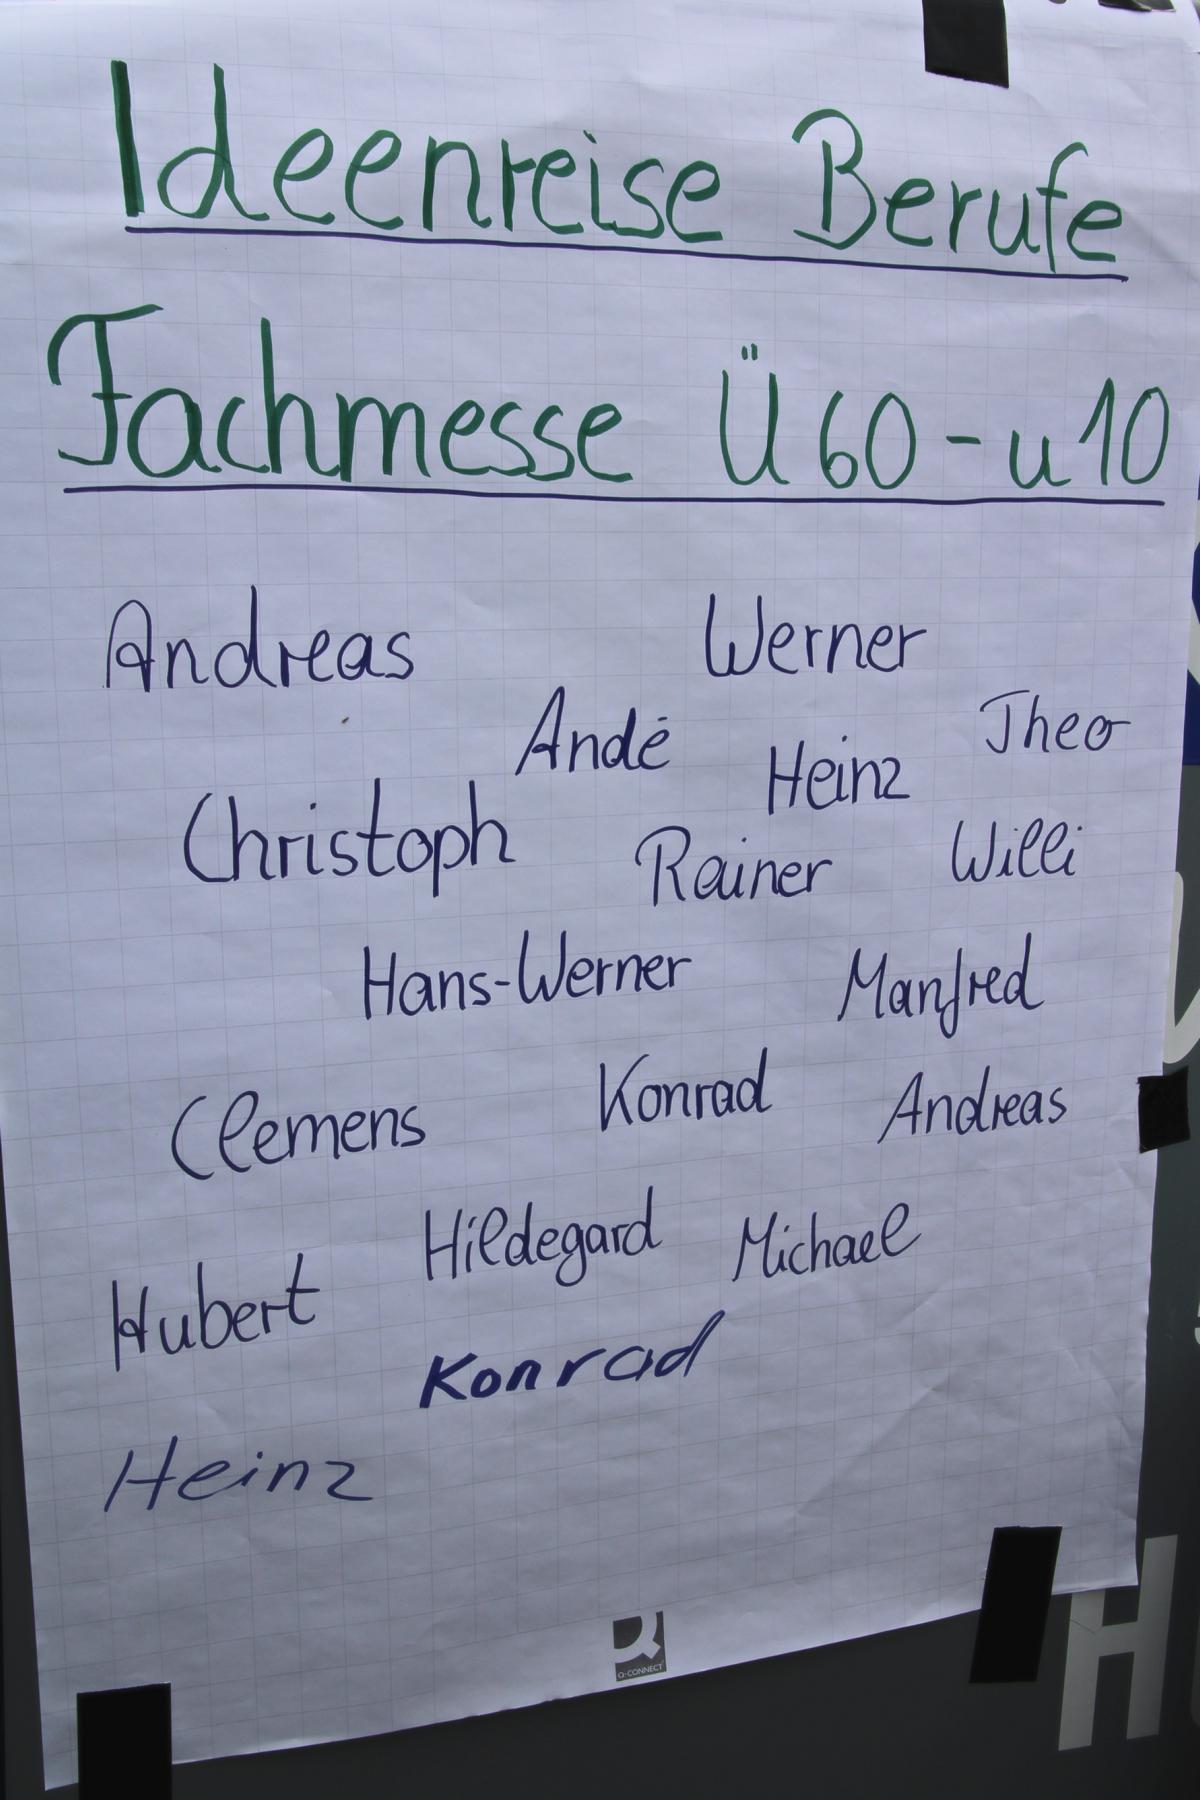 Ideenreise Berufe
Fachmesse Ü60-u10
Andreas
Werner
Andé
Heinz
Theo
Christoph
Rainer
Willi
Hans-Werner
Manfred
Clemens
Konrad
Andreas
Hubert
Hildegard
Michael
Konrad
Heinz
Q-CONNECT
H